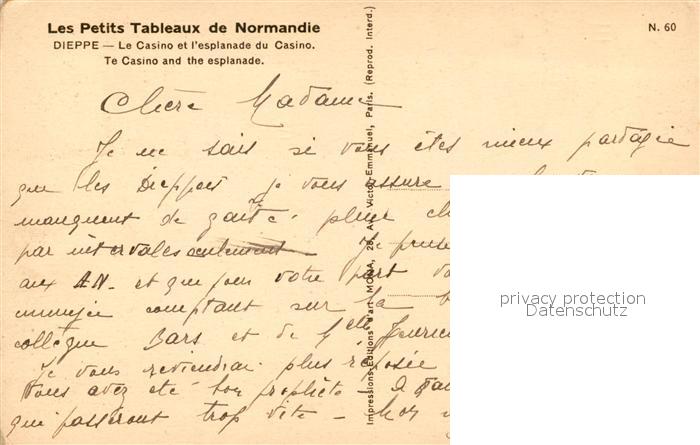 Les Petits Tableaux de Normandie
N. 60
DIEPPE — Le Casino et l'esplanade du Casino.
Te Casino and the esplanade.
Chère Madame
Je ne sais si vous êtes mieux partagée
que les Dieppois je vous assure
manquent de gaité. pluie
par intervales seulement Je pense
aux AN. et que pour votre part
comptant sur la
collègue Bars et de Melle
Je vous reviendrai plus reposée
Vous avez été bon prophète -
qui passeront trop vite - Mon
Impressions Editions d'art MONA, 28, Av. Victor Emmanuel, Paris. (Reprod. Interd.)
privacy protection
Datenschutz